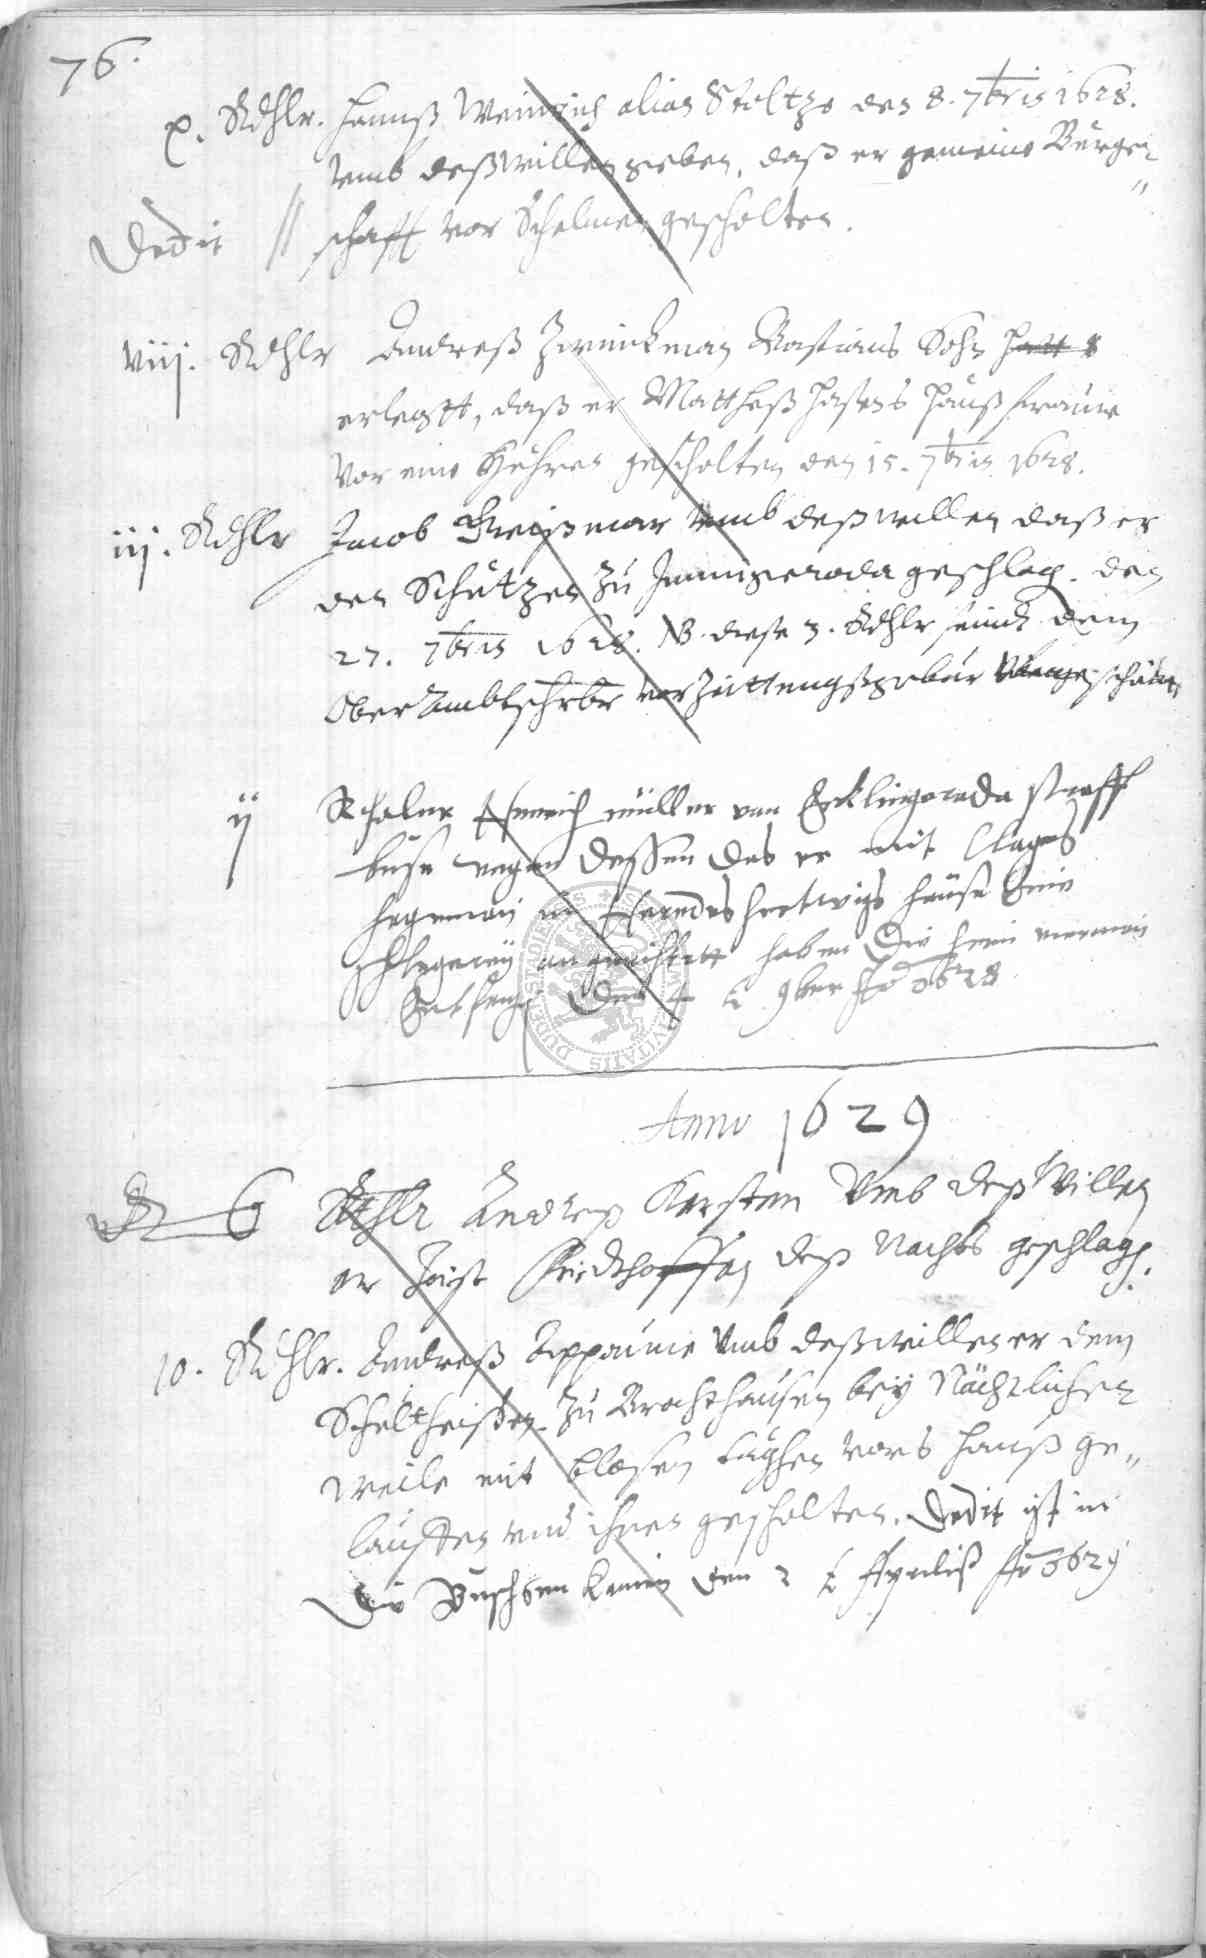 76.
x. Rthlr. Hannß Weinrich alias Stoltze den 8. 7bris 1628.
umb deßwillen geben, daß er gemeine Bürger„
Dedit // schafft vor Schelmen gescholten.
viij. Rthlr Andreß Zwinckman Bastians Sohn hatt
erlegtt, daß er Mattheß Hasens Haußfrauwe
vor eine Huhren gescholten den 15. 7bris 1628.
iij. Rthlr Jacob umb deßwillen daß er
den Schützen zu Immigeroda geschlag. den
27. 7bris 1628. NB. diese 3. Rthlr seindt dem
Ober Ambtschrbr vor
ij Rthaler Henrich Müller von Ecklingeroda straff
buse wegen dessen das er mit Clages
Hegeman in hertwigs hause eine
schlegerey angerichtett haben die herrn
Entfeng den 4 9ber Ao 1628
Anno 1629
dt 6 Rthlr Andreß Karsten umb deß willen
er deß Nachts geschlagen.
10. Rthlr. Andreß umb deßwillen er dem
Schultheißen zu Brochthausen bey Nächtlicher
weile mit blosen vors Hauß ge„
lauffen und ihnen gescholten. Dedit ist in
die Buschen komen den 2 Aprilis Ao 1629
DUDERSTADIENSIS